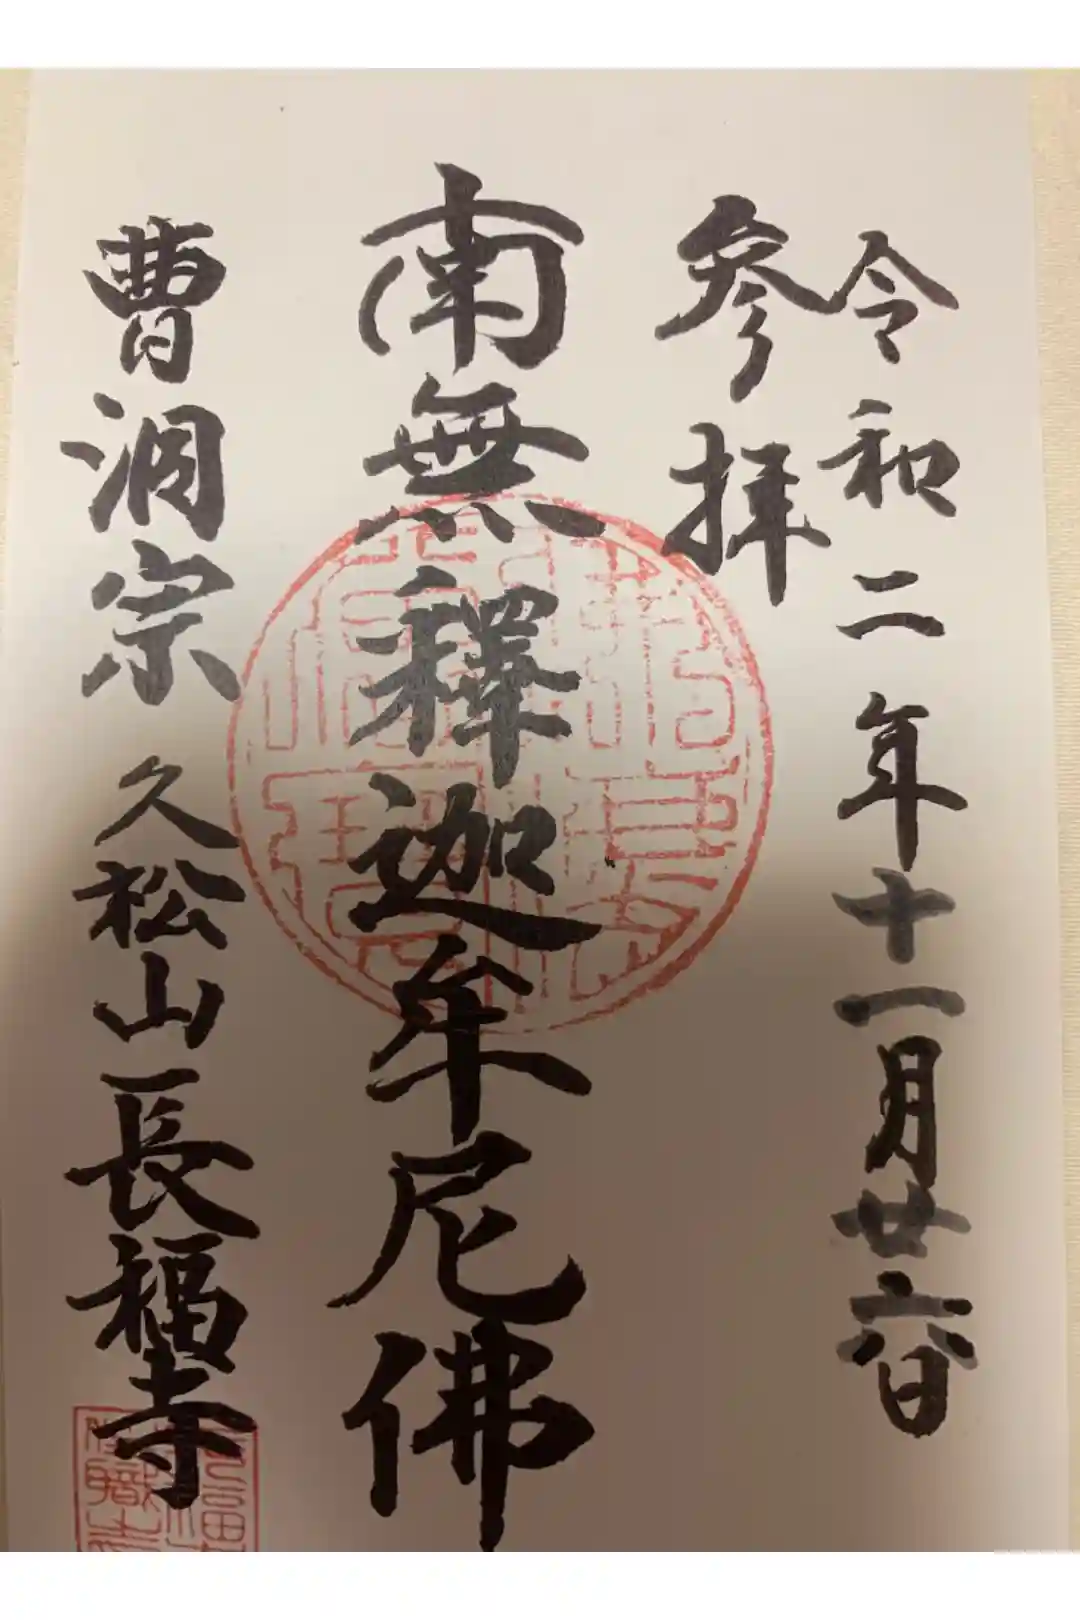 令和二年十一月廿六日
參拝
南無釋迦牟尼佛
曹洞宗 久松山長福寺